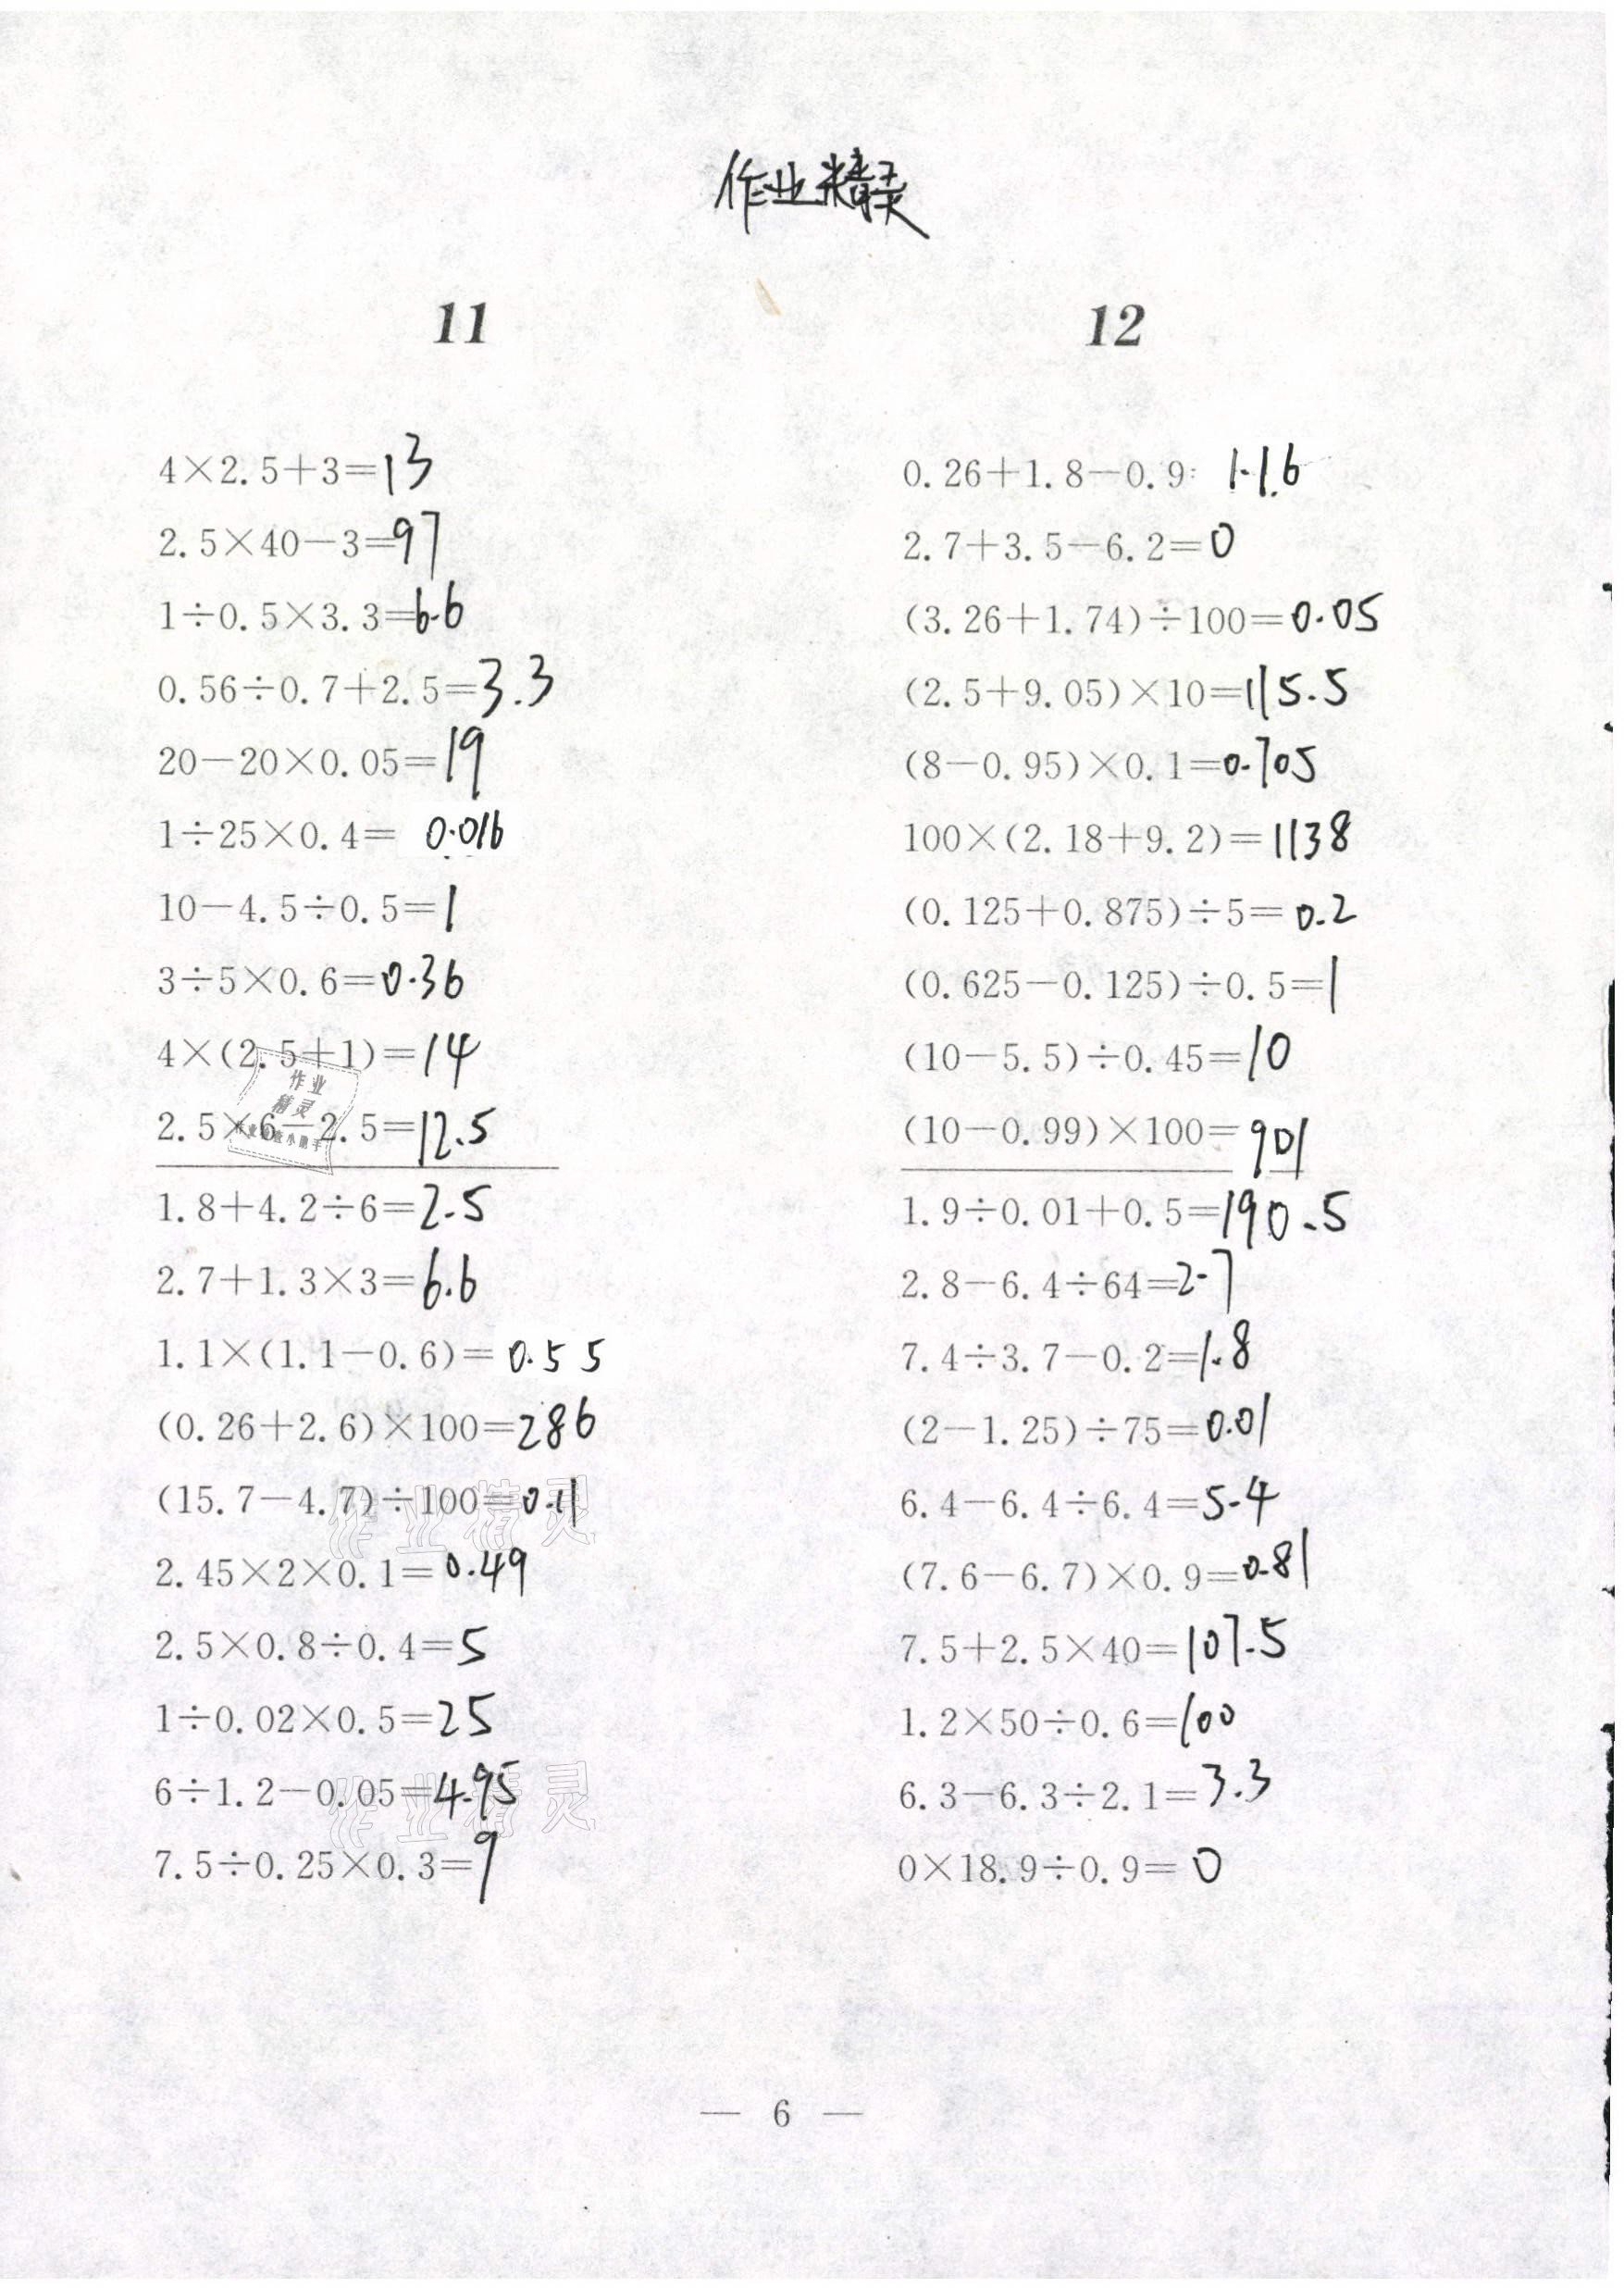 作业精灵
11
4×2.5+3=13
2.5×40-3=97
1÷0.5×3.3=6.6
0.56÷0.7+2.5=3.3
20-20×0.05=19
1÷25×0.4= 0.016
10-4.5÷0.5=1
3÷5×0.6=0.36
4×(2.5+1)=14
2.5×6-2.5=12.5
1.8+4.2÷6=2.5
2.7+1.3×3=6.6
1.1×(1.1-0.6)= 0.55
(0.26+2.6)×100=286
(15.7-4.7)÷100=0.11
2.45×2×0.1=0.49
2.5×0.8÷0.4=5
1÷0.02×0.5=25
6÷1.2-0.05=4.95
7.5÷0.25×0.3=9
12
0.26+1.8-0.9= 1.16
2.7+3.5-6.2=0
(3.26+1.74)÷100=0.05
(2.5+9.05)×10=115.5
(8-0.95)×0.1=0.705
100×(2.18+9.2)=1138
(0.125+0.875)÷5=0.2
(0.625-0.125)÷0.5=1
(10-5.5)÷0.45=10
(10-0.99)×100=901
1.9÷0.01+0.5=190.5
2.8-6.4÷64=2.7
7.4÷3.7-0.2=1.8
(2-1.25)÷75=0.01
6.4-6.4÷6.4=5.4
(7.6-6.7)×0.9=0.81
7.5+2.5×40=107.5
1.2×50÷0.6=100
6.3-6.3÷2.1=3.3
0×18.9÷0.9= 0
作业
精灵
作业精灵
作业精灵
— 6 —